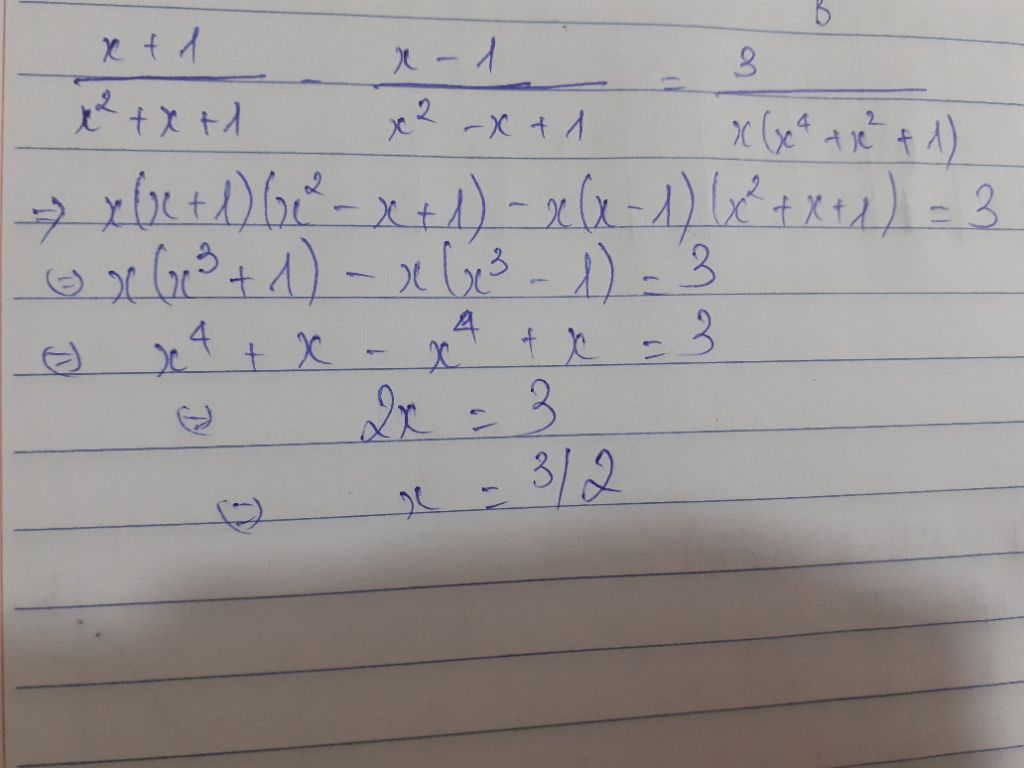 B
\frac{x+1}{x^2+x+1} - \frac{x-1}{x^2-x+1} = \frac{3}{x(x^4+x^2+1)}
⇒ x(x+1)(x^2-x+1) - x(x-1)(x^2+x+1) = 3
⇔ x(x^3+1) - x(x^3-1) = 3
⇔ x^4 + x - x^4 + x = 3
⇔ 2x = 3
⇔ x = 3/2